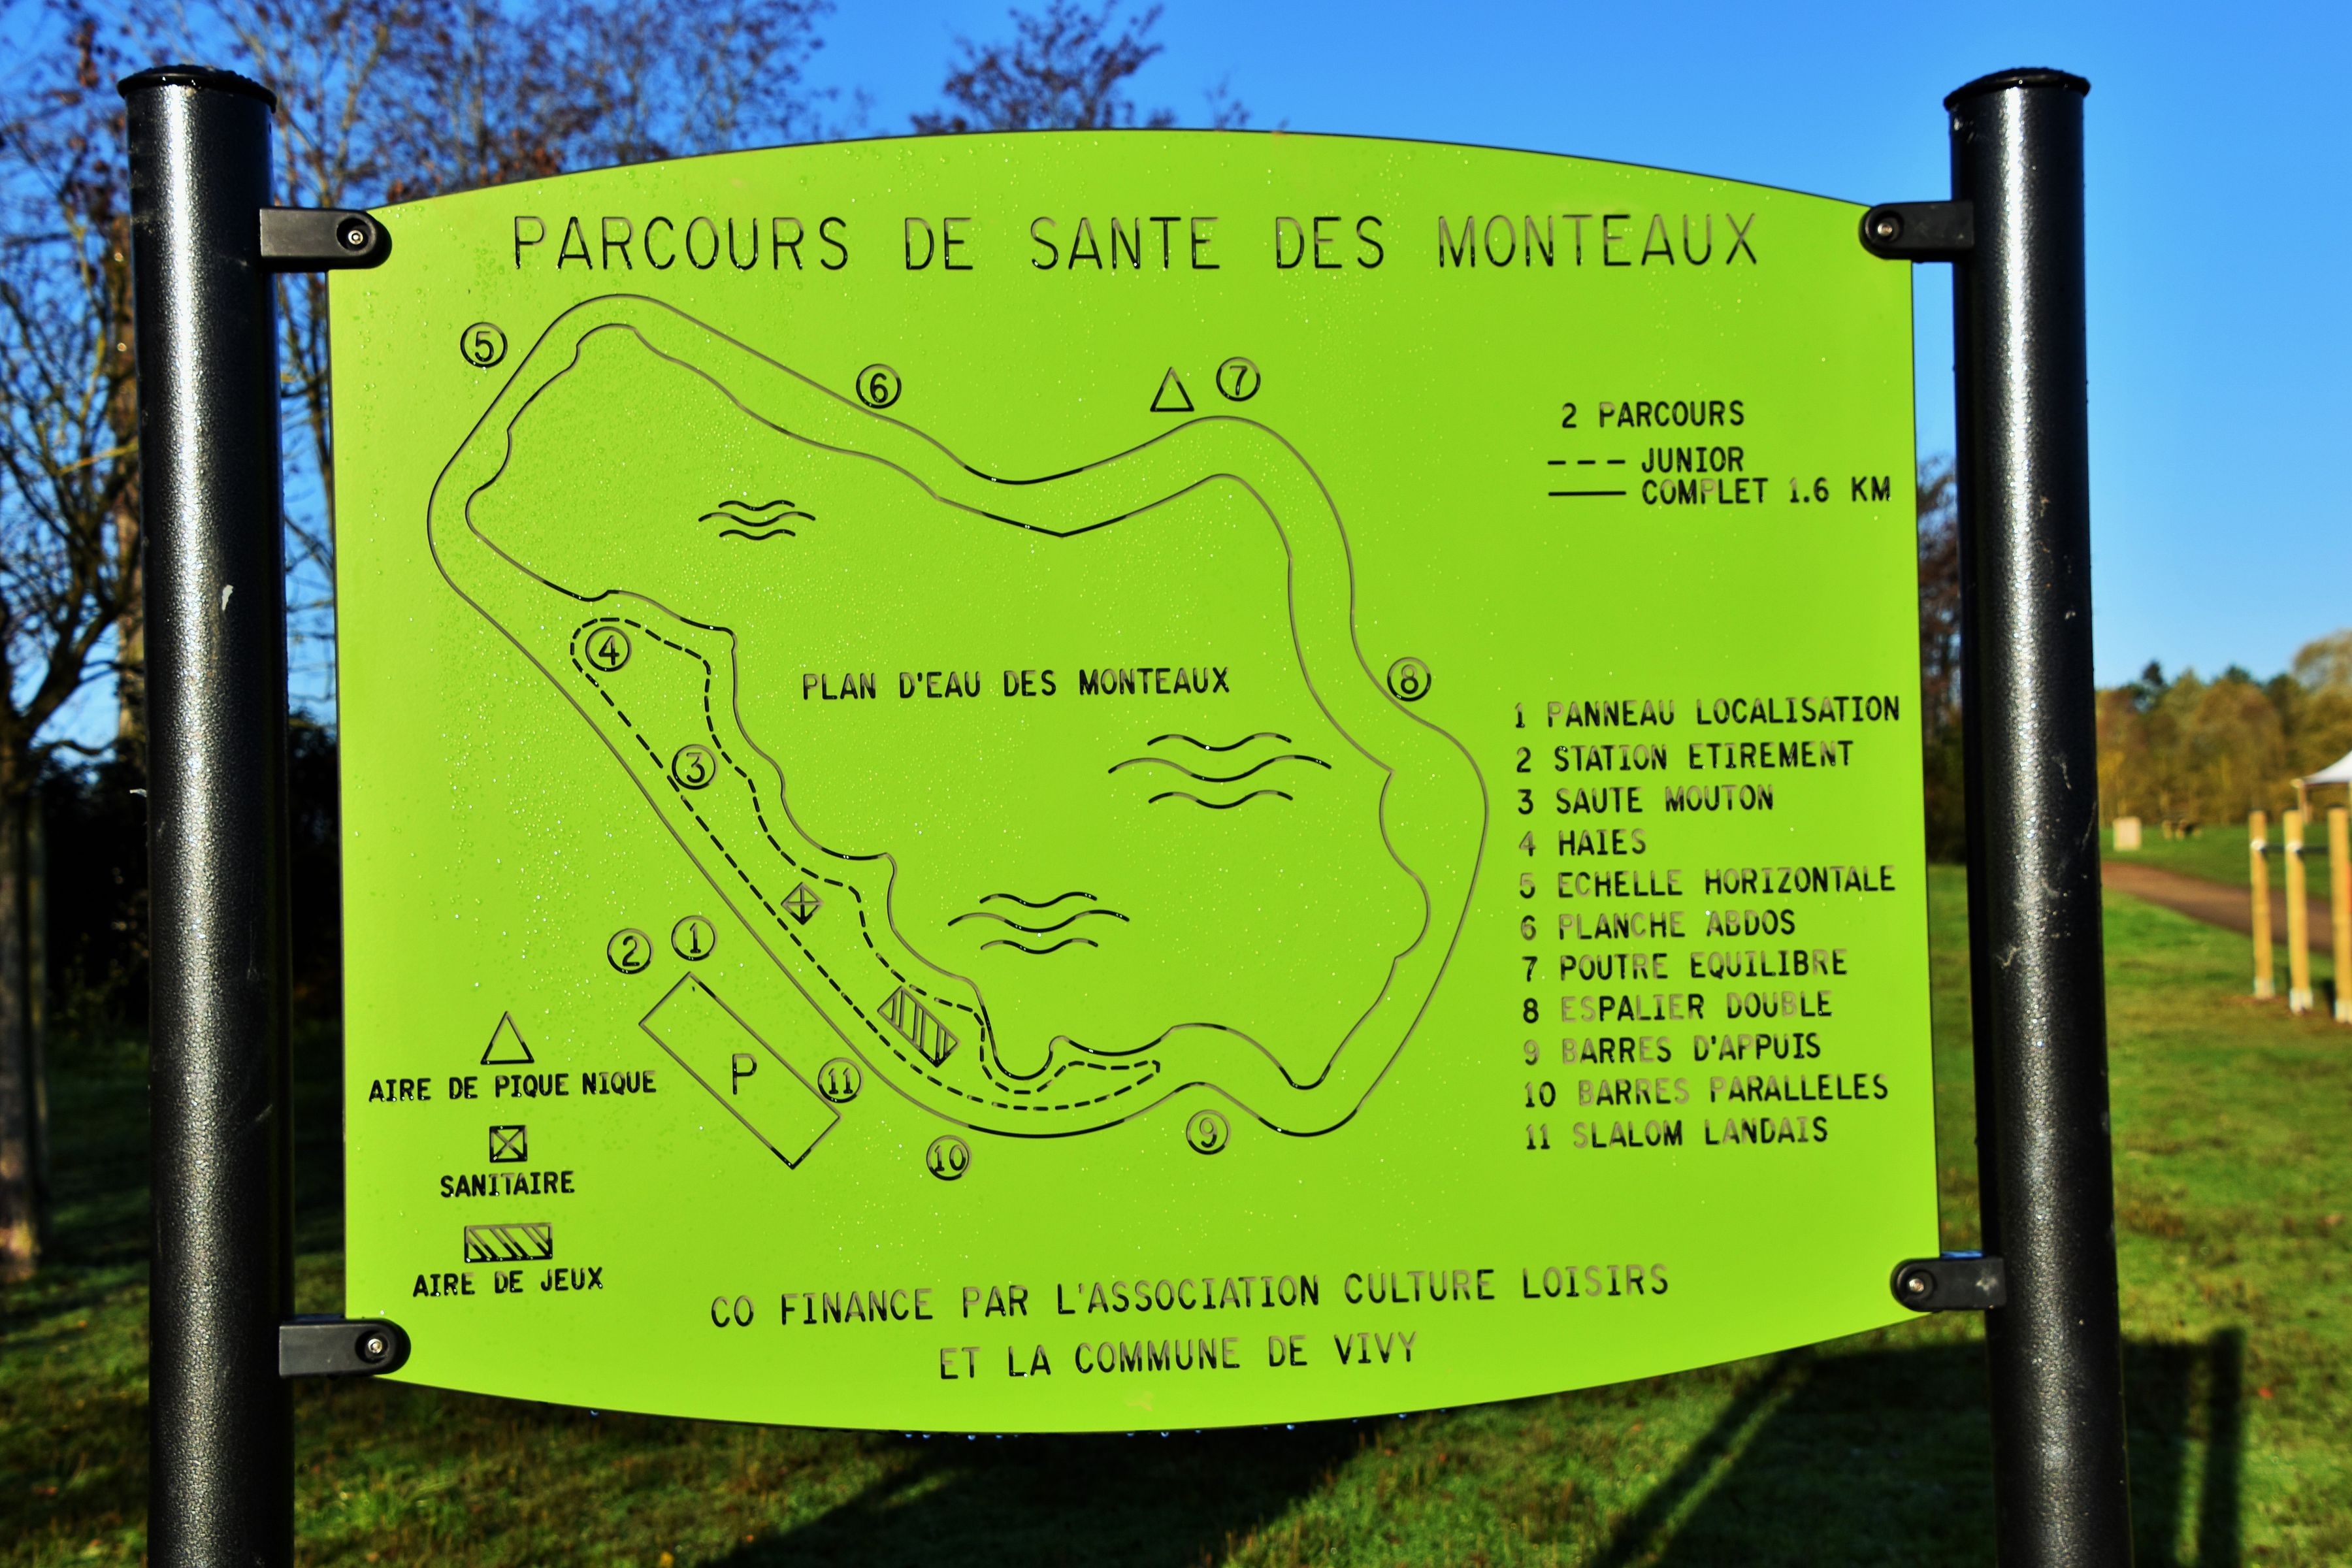 PARCOURS DE SANTE DES MONTEAUX
5
6
7
2 PARCOURS
JUNIOR
COMPLET 1.6 KM
4
PLAN D'EAU DES MONTEAUX
8
3
1 PANNEAU LOCALISATION
2 STATION ETIREMENT
3 SAUTE MOUTON
4 HAIES
5 ECHELLE HORIZONTALE
6 PLANCHE ABDOS
7 POUTRE EQUILIBRE
8 ESPALIER DOUBLE
9 BARRES D'APPUIS
10 BARRES PARALLELES
11 SLALOM LANDAIS
2 1
P
11
10
9
AIRE DE PIQUE NIQUE
SANITAIRE
AIRE DE JEUX
CO FINANCE PAR L'ASSOCIATION CULTURE LOISIRS
ET LA COMMUNE DE VIVY